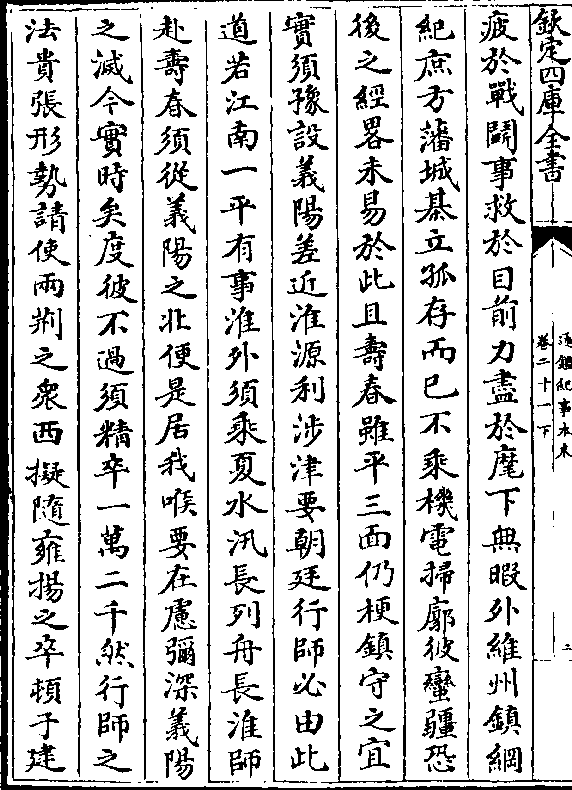 欽定四庫全書
通鑑紀事本末
卷二十一下
二
疲於戰鬭事救於目前力盡於麾下無暇外維州鎮綱
紀庶方藩城棊立孤存而已不乘機電掃廓彼蠻疆恐
後之經畧未易於此且壽春雖平三面仍梗鎮守之宜
實須豫設義陽差近淮源利涉津要朝廷行師必由此
道若江南一平有事淮外須乘夏水汛長列舟長淮師
赴壽春須從義陽之北便是居我喉要在慮彌深義陽
之滅今實時矣度彼不過須精卒一萬二千然行師之
法貴張形勢請使兩荆之衆西擬隨雍揚之卒頓于建